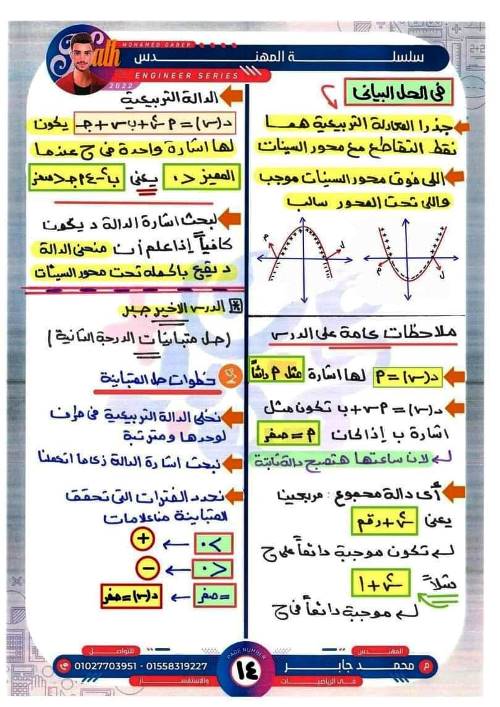 Math
MOHAMED GABER
سلسلة المهندس
ENGINEER SERIES
2022
في الحل البياني
جذرا المعادلة التربيعية هما
نقط التقاطع مع محور السينات
اللي فوق محور السينات موجب
واللي تحت المحور سالب
م
ل
م
ل
ملاحظات عامة على الدرس
د(س) = م لها اشارة مثل م دائماً
د(س) = م س + ب تكون مثل
اشارة ب إذا كانت م = صفر
لان ساعتها هتصبح دالة ثابتة
أي دالة مجموع مربعين
يعني س² + رقم
تكون موجبة دائماً على ح
مثلاً س² + 1
موجبة دائماً في ح
الدالة التربيعية
د(س) = م س² + ب س + جـ يكون
لها اشارة واحدة في ح عندما
المميز < 0 يعني ب² - ٤ م جـ < صفر
لبحث اشارة الدالة د يكون
كافياً إذا علم أن منحنى الدالة
د يقع بأكمله تحت محور السينات
الدرس الاخير جبر
(حل متباينات الدرجة الثانية)
خطوات حل المتباينة
نخلي الدالة التربيعية في طرف
لوحدها ومترتبة
نبحث اشارة الدالة زي ما اتعلمنا
نحدد الفترات التي تحقق
المتباينة من العلامات
> 0 ← +
< 0 ← −
= صفر ← د(س) = صفر
المهندس
م محمد جابر
في الرياضيات
PAGE NUMBER
١٤
للتواصل
01027703951 - 01558319227
والاستفسار